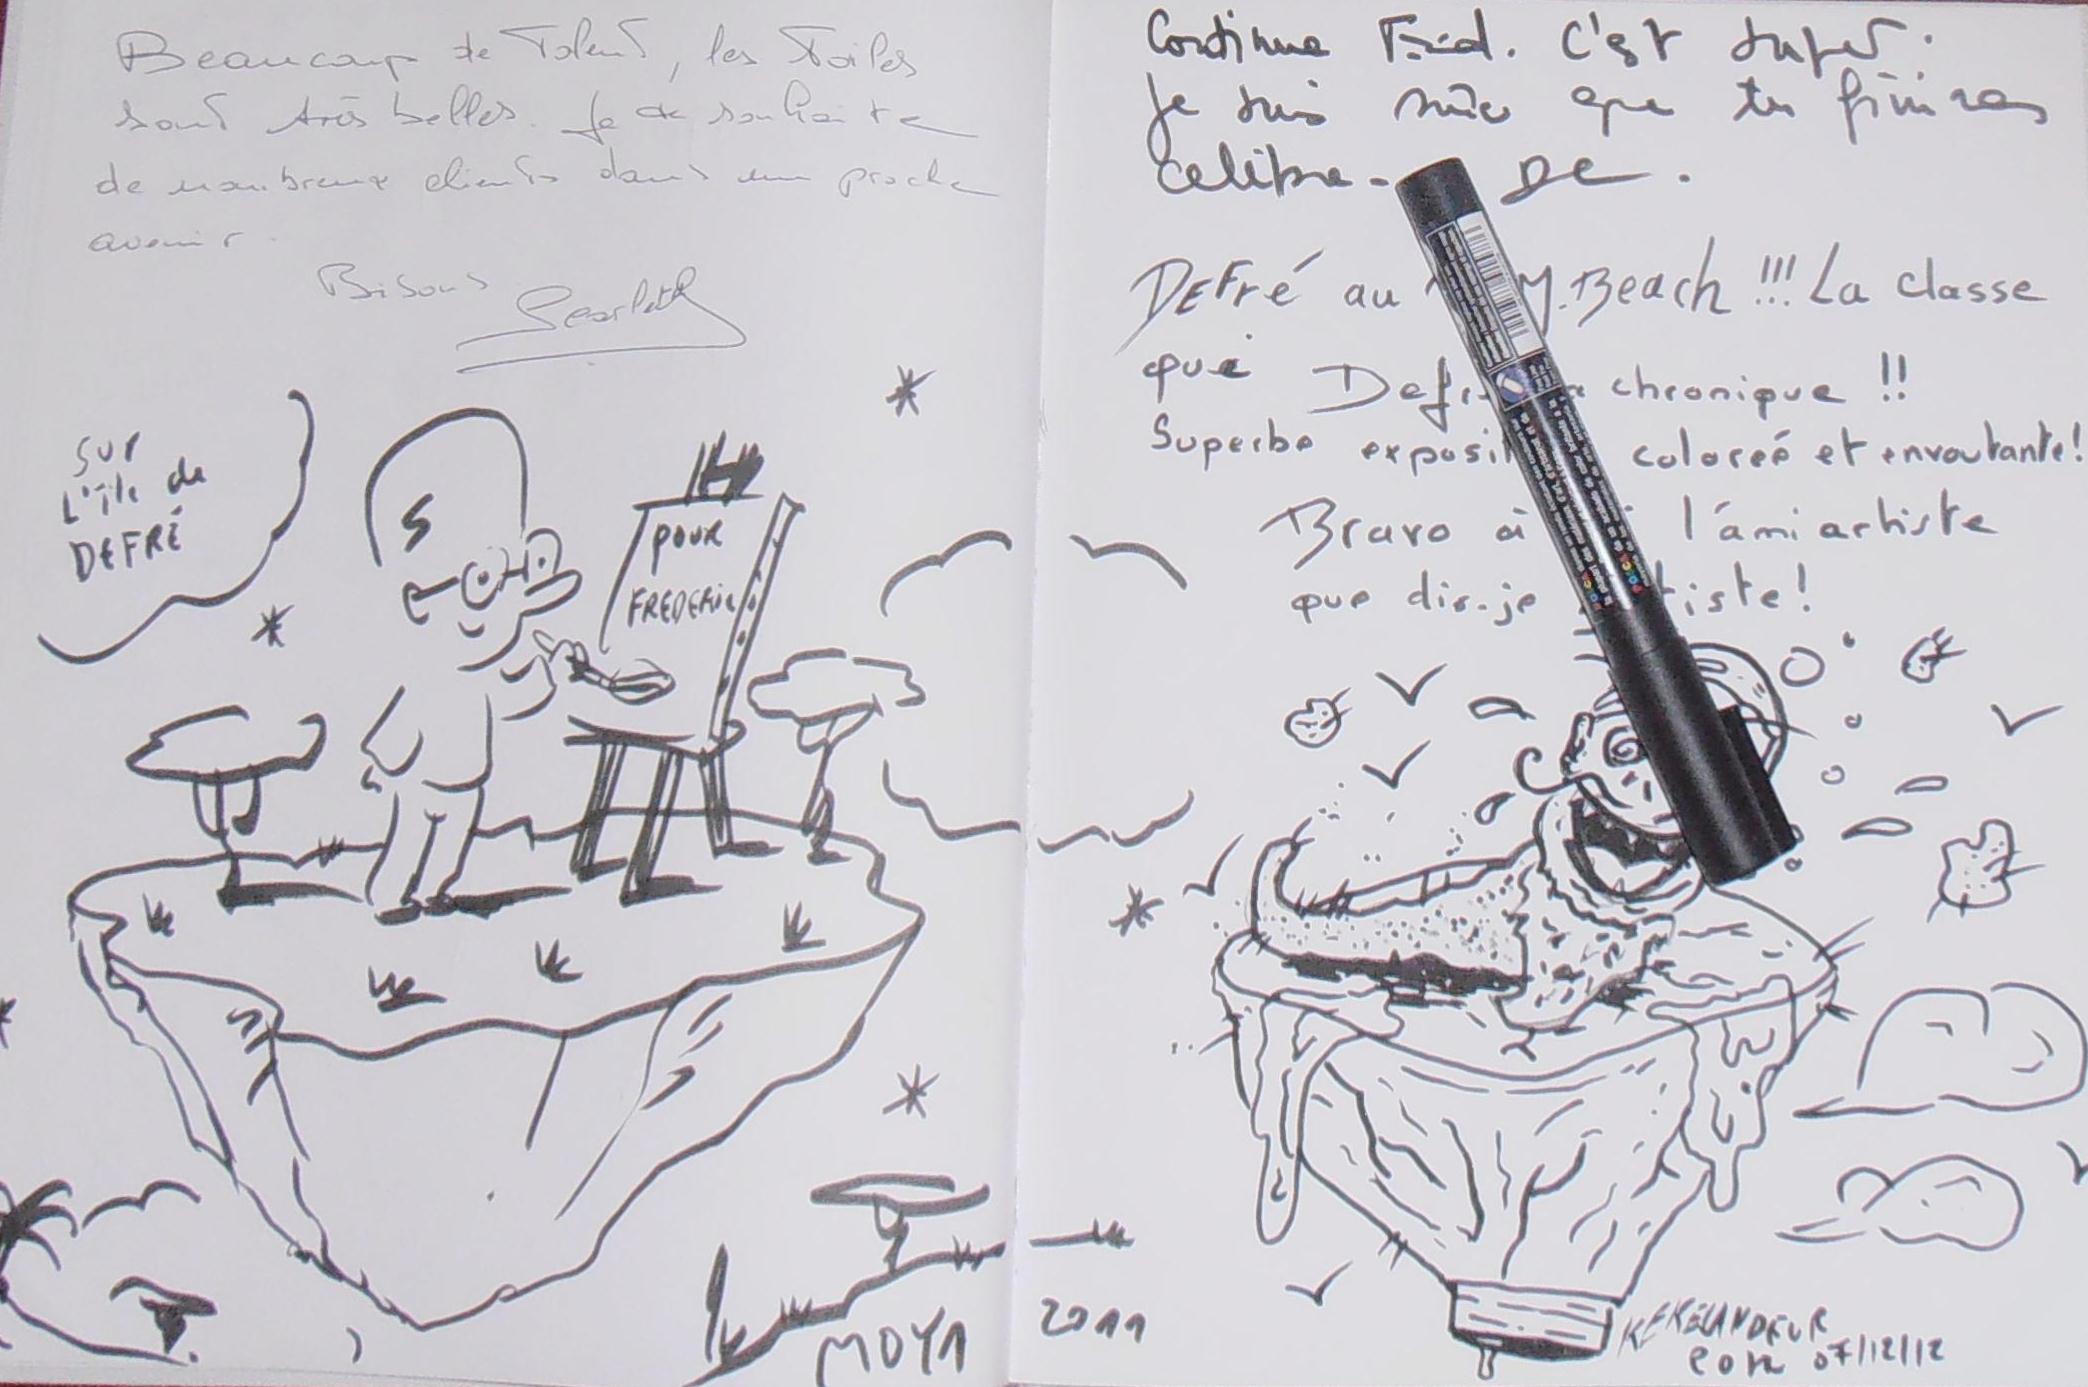 Beaucoup de Talent, les Toiles
sont très belles. Je te souhaite
de nombreux clients dans un proche
avenir.
Bisous
Scarlett
Sur
L'île de
DEFRÉ
pour
FREDERIC
MOYA 2011
Continue Fred. C'est super.
Je suis sûr que tu finiras
celibre. DE.
DEFré au M.Beach !!! La classe
que chronique !!
Superbe coloreé et envoutante!
Bravo à l'ami artiste
que dis-je
KEKELANDEUR
07/12/12